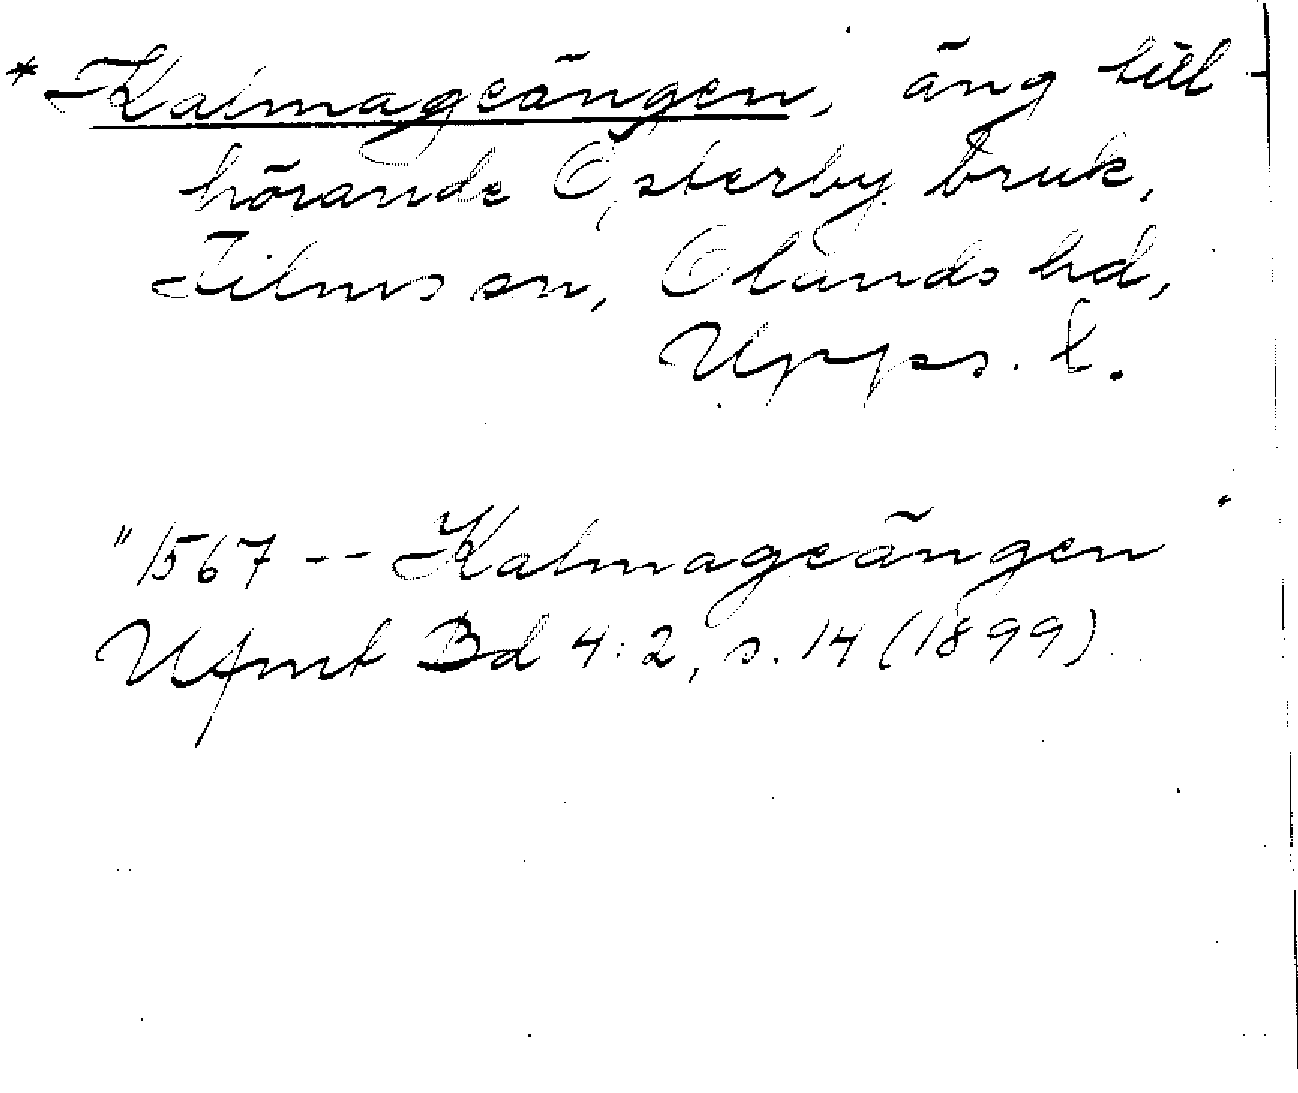 * Kalmageängen, äng till-
hörande Österby bruk,
Films sn, Olands hd,
Upps. l.
"1567 -- Kalmageängen"
Ufmt Bd 4:2, s. 14 (1899).